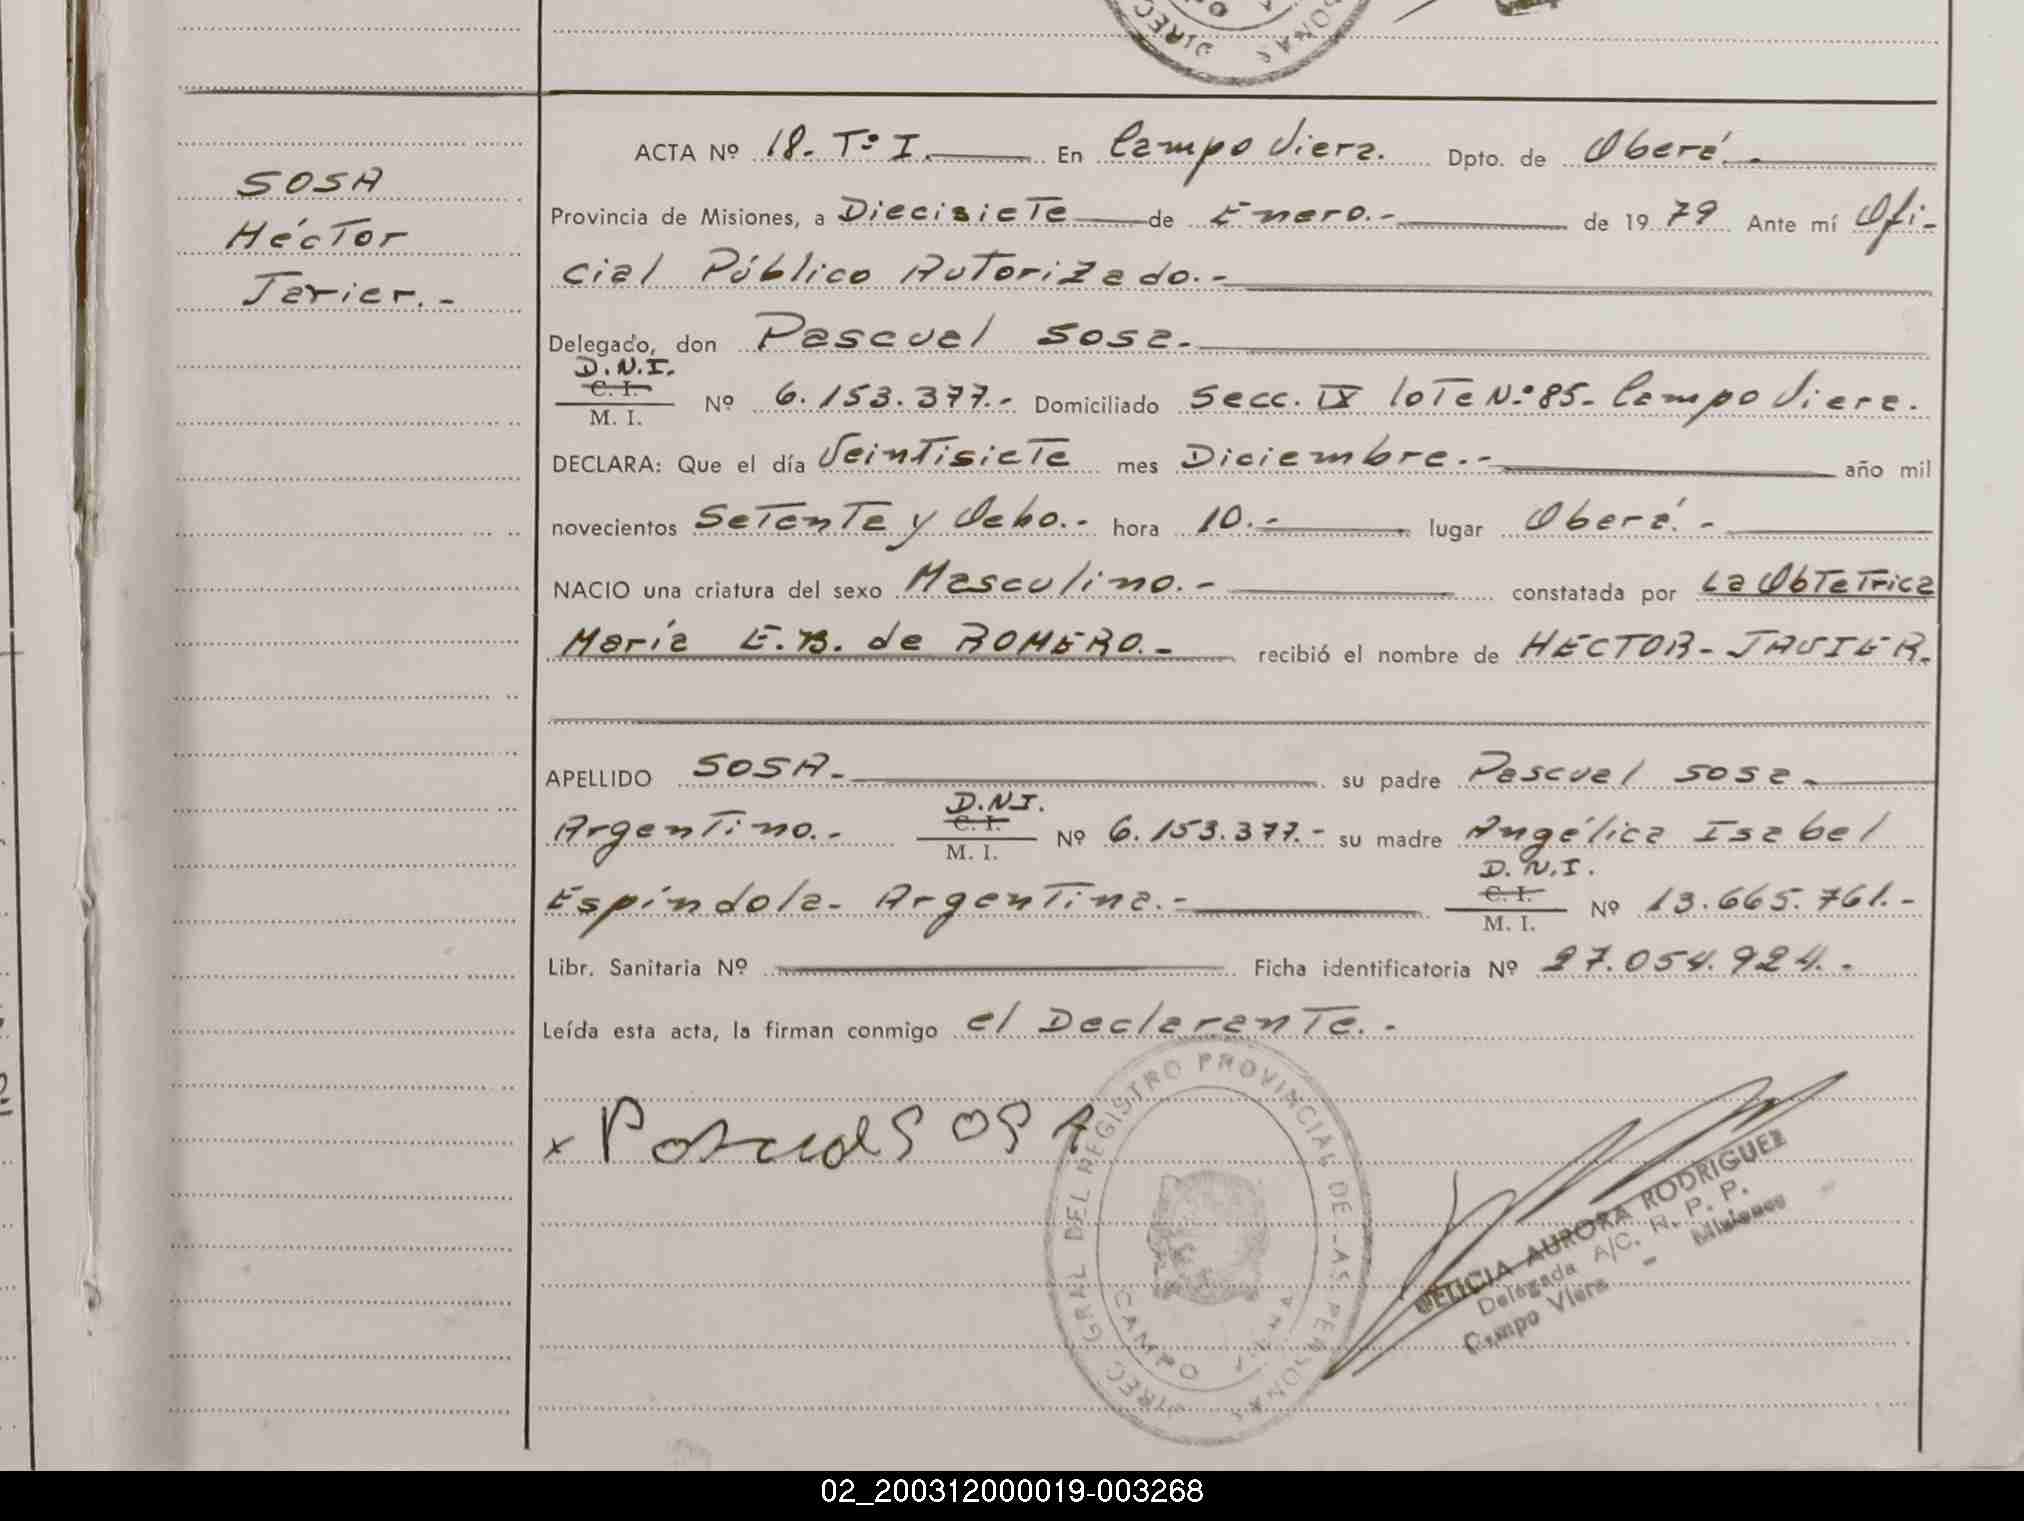 DIREC
SONAS
SOSA
Héctor
Javier.-
ACTA Nº 18. Tº I. En Campo Viera. Dpto. de Oberá.-
Provincia de Misiones, a Diecisiete de Enero.- de 19 79 Ante mí Ofi-
cial Público Autorizado.-
Delegado, don Pascual Sosa.-
D.N.I.
C. I.
M. I.
Nº 6.153.377.- Domiciliado Secc. IX lote Nº 85- Campo Viera.
DECLARA: Que el día Veintisiete mes Diciembre.- año mil
novecientos Setenta y Ocho.- hora 10.- lugar Oberá.-
NACIO una criatura del sexo Masculino.- constatada por La Obtetrica
María E.B. de ROMERO.- recibió el nombre de HECTOR-JAVIER.
APELLIDO SOSA.- su padre Pascual Sosa.-
D.N.I.
C. I.
M. I.
Argentino.- Nº 6.153.377.- su madre Angélica Isabel
D.N.I.
C. I.
M. I.
Espíndola- Argentina.- Nº 13.665.761.-
Libr. Sanitaria Nº Ficha identificatoria Nº 27.054.924.-
Leída esta acta, la firman conmigo el Declarante.-
x Pascual SOSA
DIREC GRAL DEL REGISTRO PROVINCIAL DE LAS PERSONAS
CAMPO VIERA
FELICIA AURORA RODRIGUEZ
Delegada A/C. R. P. P.
Campo Viera - Misiones
02_200312000019-003268